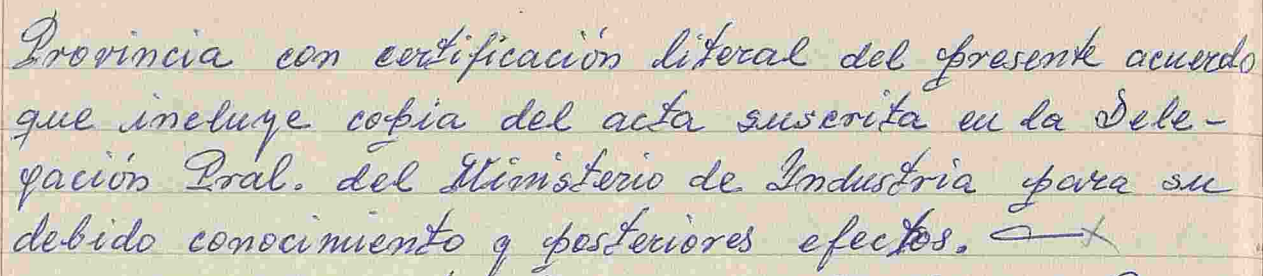 Provincia con certificación literal del presente acuerdo
que incluye copia del acta suscrita en la Dele-
gación Pral. del Ministerio de Industria para su
debido conocimiento y posteriores efectos.